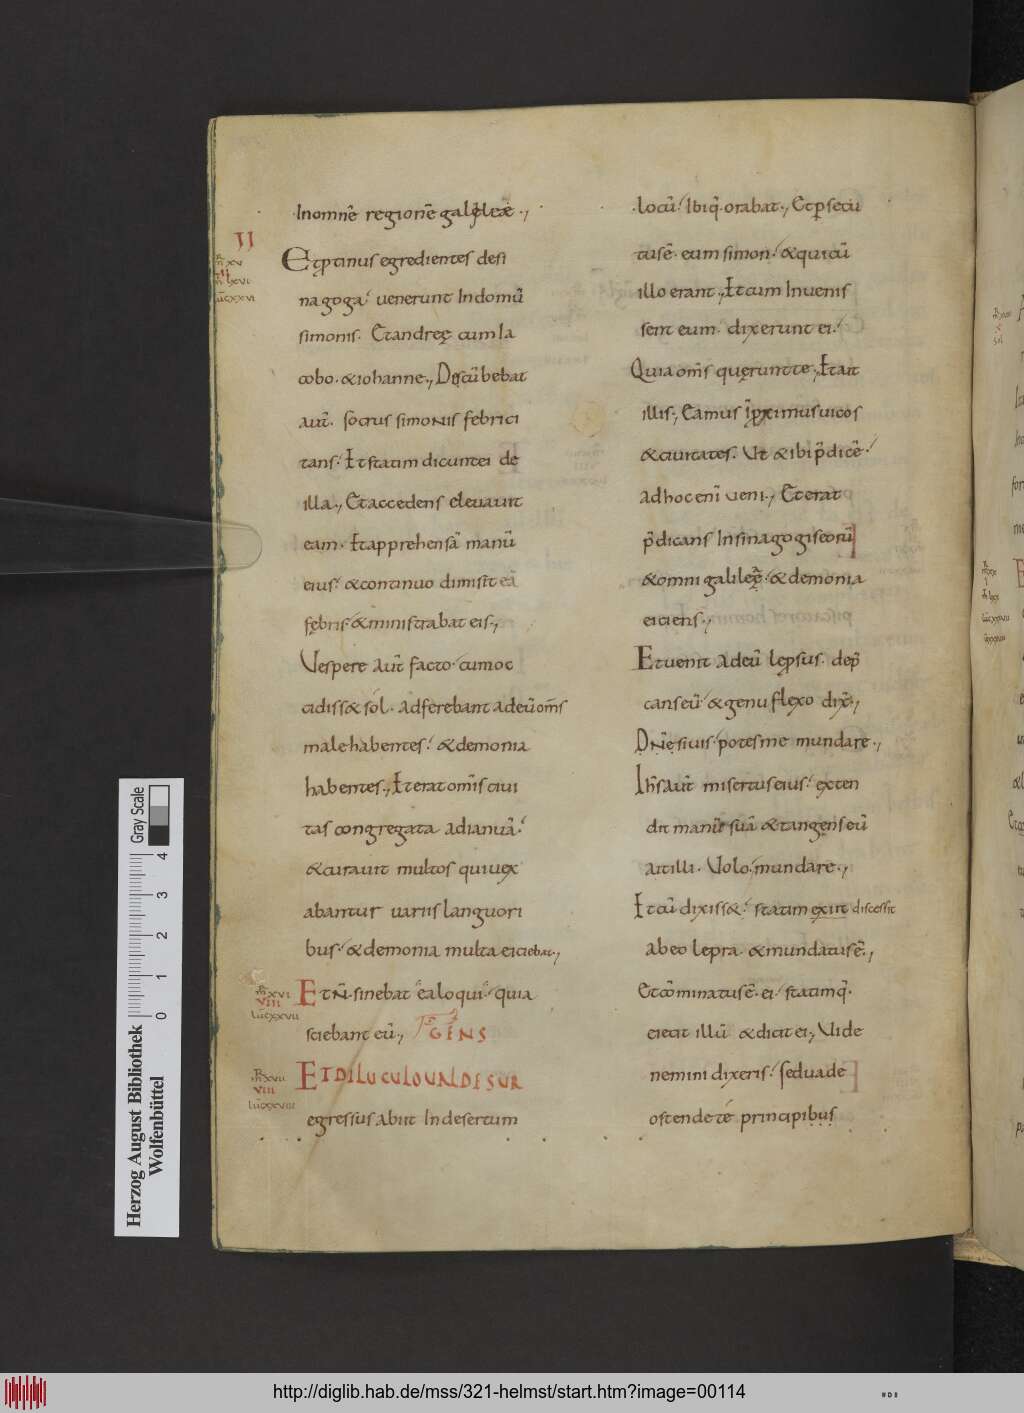 Inomnē regionē galileæ.,
II
Etptinus egredientes desi
nagoga. uenerunt Indomū
simonis. Etandreę cumIa
cobo. &iohanne., Discūbebat
aut̄. socrus simonis febrici
tans. Etstatim dicuntei de
illa., Etaccedens eleuauit
eam. Etapprehensā manū
eius. &continuo dimisit eā
fębris &ministrabat eis.,
Vespere aut̄ facto. cumoc
cidiss& sol. adferebant adeūom̄s
malehabentes. &demonia
habentes., Eterat om̄s ciui
tas congregata adianuā.
&curauit multos quiuex
abantur uariis languori
bus. &demonia multa eiciebat.,
m̄ xvi
VIII
lūcxxvii
Et N̄. sinebat ea loqui. quia
sciebant eū., GENS
m̄ xvii
VIII
lūcxxviii
ET DILUCULO UALDE SUR
egressus abiit Indesertum
locū. Ibiq̄. orabat., Et p̄secu
tusē. eum simon. &quicū
illo erant., Etcum Inuenis
sent eum. dixerunt ei.
Quia om̄s quęrunt te., Etait
illis., Eamus īproximos uicos
&ciuitates. Vt &ibi p̄dicē.
adhoc enī ueni., Et erat
p̄dicans Insinagogis eorū
&omni galileę. &demonia
eiciens.,
Etuenit adeū lepsus. dep̄
canseū. &genu flexo dix̄.,
Dn̄e siuis. potes me mundare.,
Ih̄s aut̄ misertus eius. exten
dit manū suā &tangens eū
aitilli. Volo. mundare.,
Etcū dixiss&. statim exiit discessit
abeo lepra. &mundatusē.,
Etcōminatusē. ei. statimq̄.
eiecit illū &dicit ei., Vide
nemini dixeris. seduade
ostende te principibus
Herzog August Bibliothek
Wolfenbüttel
0 1 2 3 4
Gray Scale
http://diglib.hab.de/mss/321-helmst/start.htm?image=00114